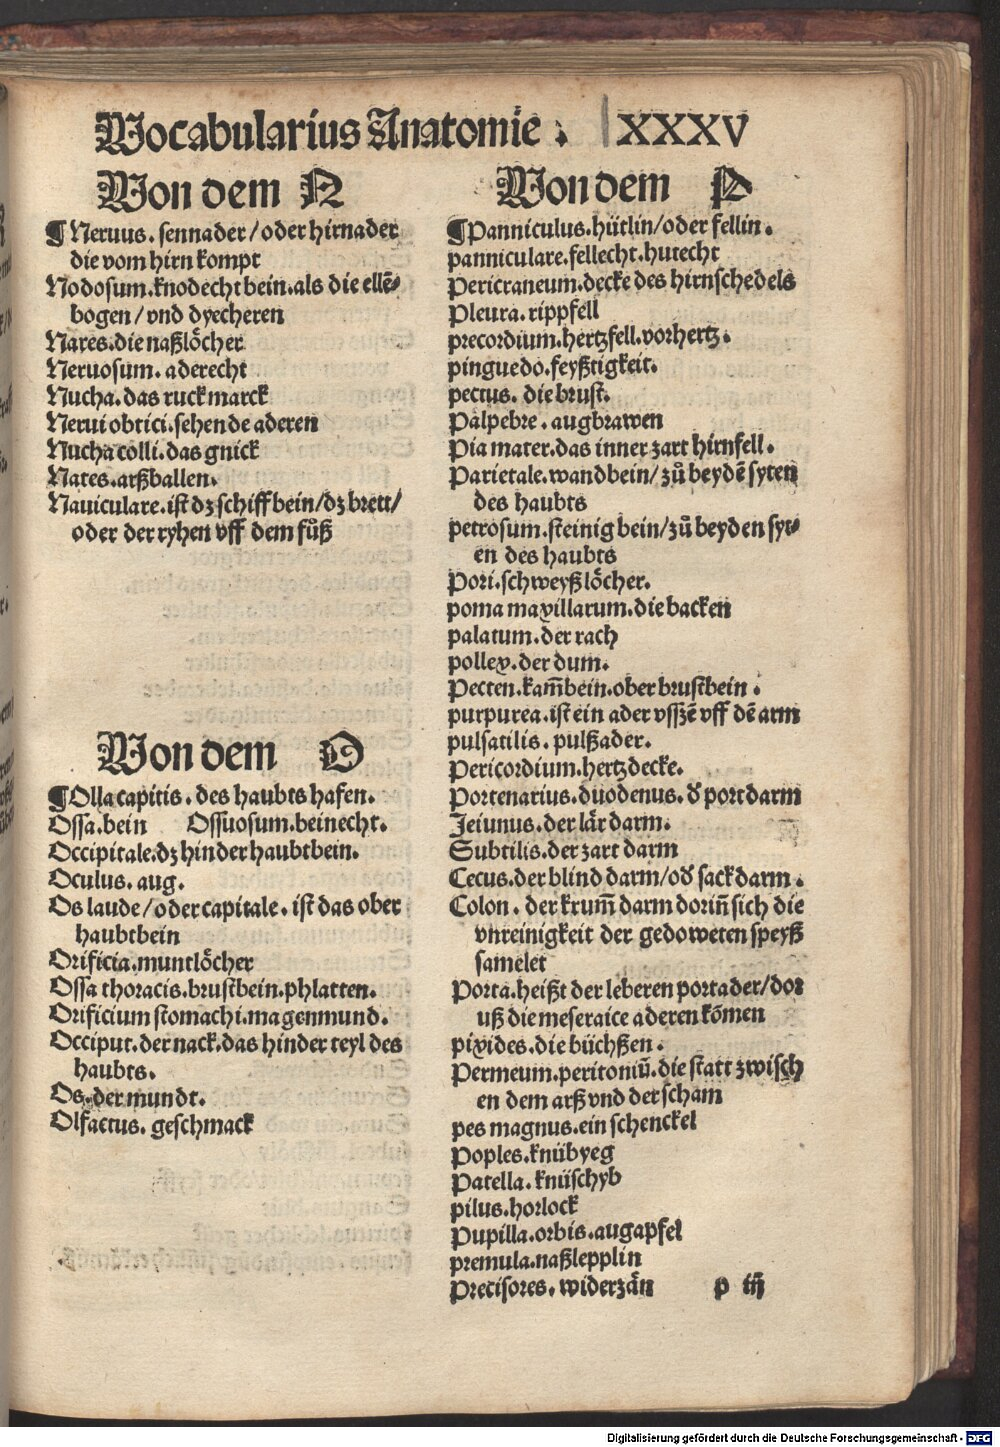 Vocabularius Anatomie . XXXV
Von dem N
¶ Neruus. sennader / oder hirnader
die vom hirn kompt
Nodosum. knodecht bein. als die ellē-
bogen / vnd dyecheren
Nares. die naßlöcher
Neruosum. aderecht
Nucha. das ruck marck
Nerui obtici. sehende aderen
Nucha colli. das gnick
Nates. arßballen.
Nauiculare. ist dz schiff bein / dz brett /
oder der ryhen vff dem fůß
Von dem O
¶ Olla capitis. des haubts hafen.
Ossa. bein Ossuosum. beinecht.
Occipitale. dz hinder haubtbein.
Oculus. aug.
Os laude / oder capitale. ist das ober
haubtbein
Orificia. muntlöcher
Ossa thoracis. brustbein. phlatten.
Orificium stomachi. magenmund.
Occiput. der nack. das hinder teyl des
haubts.
Os. der mundt.
Olfactus. geschmack
Von dem P
¶ Panniculus. hütlin / oder fellin.
panniculare. fellecht. hutecht
Pericraneum. decke des hirnschedels
Pleura. rippfell
precordium. hertzfell. vorhertz.
pinguedo. feyßtigkeit.
pectus. die brust.
Palpebre. augbrawen
Pia mater. das inner zart hirnfell.
Parietale. wandbein / zů beydē syten
des haubts
petrosum. steinig bein / zů beyden syt-
en des haubts
Pori. schweyß löcher.
poma maxillarum. die backen
palatum. der rach
pollex. der dum.
Pecten. kam̄bein. ober brustbein.
purpurea. ist ein ader vsszē vff dē arm
pulsatilis. pulßader.
Pericordium. hertzdecke.
Portenarius. duodenus. d̛ portdarm
Jeiunus. der lär darm.
Subtilis. der zart darm
Cecus. der blind darm / od̛ sack darm.
Colon. der krum̄ darm dorin̄ sich die
vnreinigkeit der gedoweten speyß
samelet
Porta. heißt der leberen portader / dor
uß die meseraice aderen kōmen
pixides. die büchßen.
Permeum. peritoniū. die statt zwisch
en dem arß vnd der scham
pes magnus. ein schenckel
Poples. knübyeg
Patella. knüschyb
pilus. horlock
Pupilla. orbis. augapfel
premula. naßlepplin
Precisores. widerzän p iij
Digitalisierung gefördert durch die Deutsche Forschungsgemeinschaft - DFG